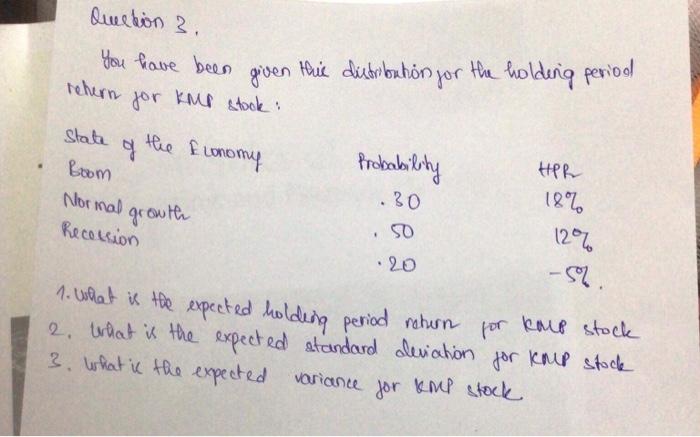 Question 3.
You have been given this distribution for the holding period
return for KMP stock:
State of the Economy Probability HPR
Boom .30 18%
Normal growth .50 12%
Recession .20 -5%.
1. What is the expected holding period return for KMP stock
2. What is the expected standard deviation for KMP stock
3. What is the expected variance for KMP stock